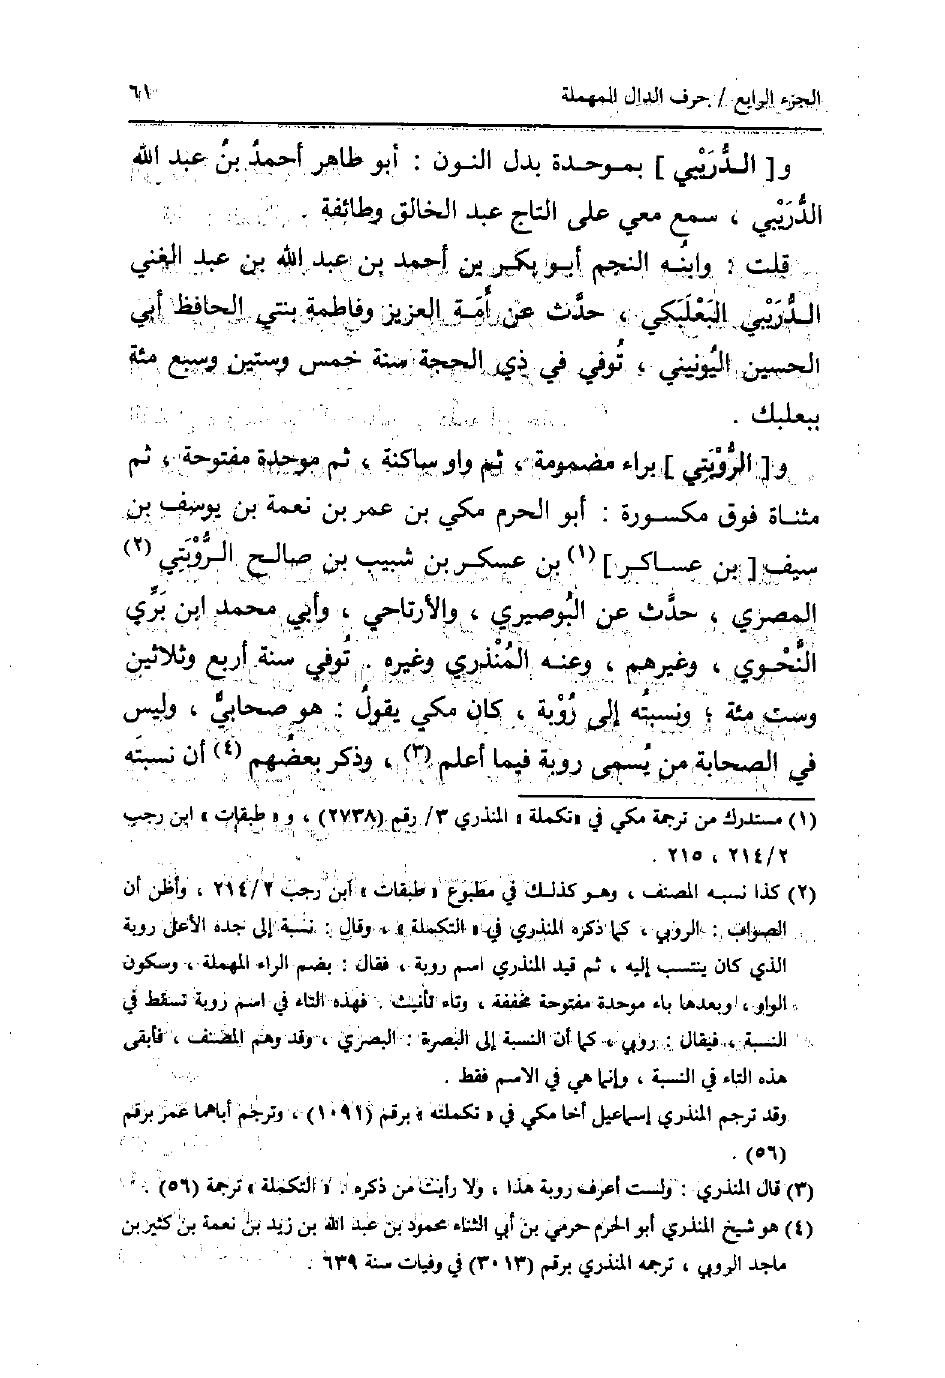 الجزء الرابع / حرف الدال المهملة ٦١
و[ الدُّرَيْبي ] بموحدة بدل النون : أبو طاهر أحمدُ بنُ عبد الله
الدُّرَيْبي ، سمع معي على التاج عبد الخالق وطائفة .
قلت : وابنُه النجم أبو بكر بن أحمد بن عبد الله بن عبد الغني
الدُّرَيْبي البَعْلَبَكي ، حدَّث عن أَمَة العزيز وفاطمة بنتي الحافظ أبي
الحسين اليُونيني ، تُوفي في ذي الحجة سنة خمس وستين وسبع مئة
ببعلبك .
و[ الرُّوْبَتِي ] براء مضمومة ، ثم واو ساكنة ، ثم موحدة مفتوحة ، ثم
مثناة فوق مكسورة : أبو الحرم مكي بن عمر بن نعمة بن يوسف بن
سيف [ بن عساكر ] (١) بن عسكر بن شبيب بن صالح الرُّوْبَتِي (٢)
المصري ، حدَّث عن البُوصيري ، والأرتاحي ، وأبي محمد ابن بَرِّي
النَّحْوي ، وغيرهم ، وعنه المُنْذري وغيره . تُوفي سنة أربع وثلاثين
وست مئة ؛ ونسبتُه إلى رُوْبة ، كان مكي يقولُ : هو صحابيٌّ ، وليس
في الصحابة من يُسمى روبة فيما أعلم (٣) ، وذكر بعضُهم (٤) أن نسبتَه
(١) مستدرك من ترجمة مكي في «تكملة» المنذري ٣/ رقم (٢٧٣٨) ، و« طبقات » ابن رجب
٢/ ٢١٤ ، ٢١٥ .
(٢) كذا نسبه المصنف ، وهو كذلك في مطبوع « طبقات » ابن رجب ٢/ ٢١٤ ، وأظن أن
الصواب : الروبي ، كما ذكره المنذري في « التكملة » ، وقال : نسبة إلى جده الأعلى روبة
الذي كان ينتسب إليه ، ثم قيد المنذري اسم روبة ، فقال : بضم الراء المهملة ، وسكون
الواو ، وبعدها باء موحدة مفتوحة مخففة ، وتاء تأنيث . فهذه التاء في اسم روبة تسقط في
النسبة ، فيقال : روبي ، كما أن النسبة إلى البصرة : البصري ، وقد وهم المصنف ، فأبقى
هذه التاء في النسبة ، وإنما هي في الاسم فقط .
وقد ترجم المنذري إسماعيل أخا مكي في « تكملته » برقم (١٠٩١) ، وترجم أباهما عمر برقم
(٥٦) .
(٣) قال المنذري : ولست أعرف روبة هذا ، ولا رأيت من ذكره . « التكملة » ترجمة (٥٦) .
(٤) هو شيخ المنذري أبو الحرم حرمي بن أبي الثناء محمود بن عبد الله بن زيد بن نعمة بن كثير بن
ماجد الروبي ، ترجمه المنذري برقم (٣٠١٣) في وفيات سنة ٦٣٩ .